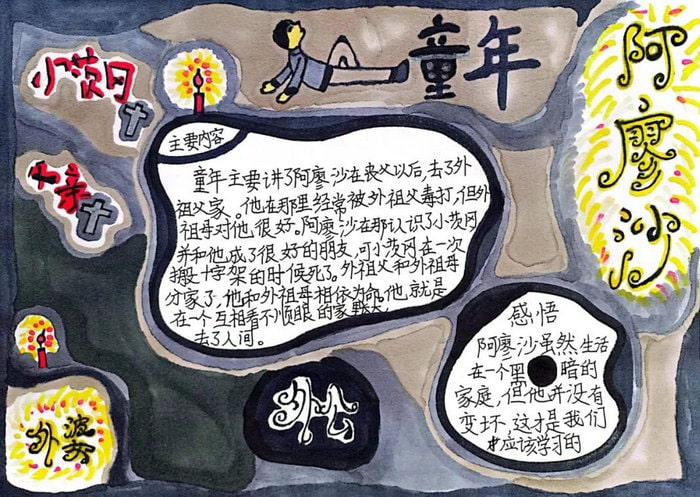 童年
阿廖沙
小茨冈
父亲
主要内容
童年主要讲了阿廖沙在丧父以后,去了外
祖父家。他在那里经常被外祖父毒打,但外
祖母对他很好。阿廖沙在那认识了小茨冈
并和他成了很好的朋友,可小茨冈在一次
搬十字架的时候死了。外祖父和外祖母
分家了,他和外祖母相依为命。他就是
在一个互相看不顺眼的家
去了人间。
感悟
阿廖沙虽然生活
在一个黑暗的
家庭,但他并没有
变坏,这才是我们
应该学习的
外公
外婆